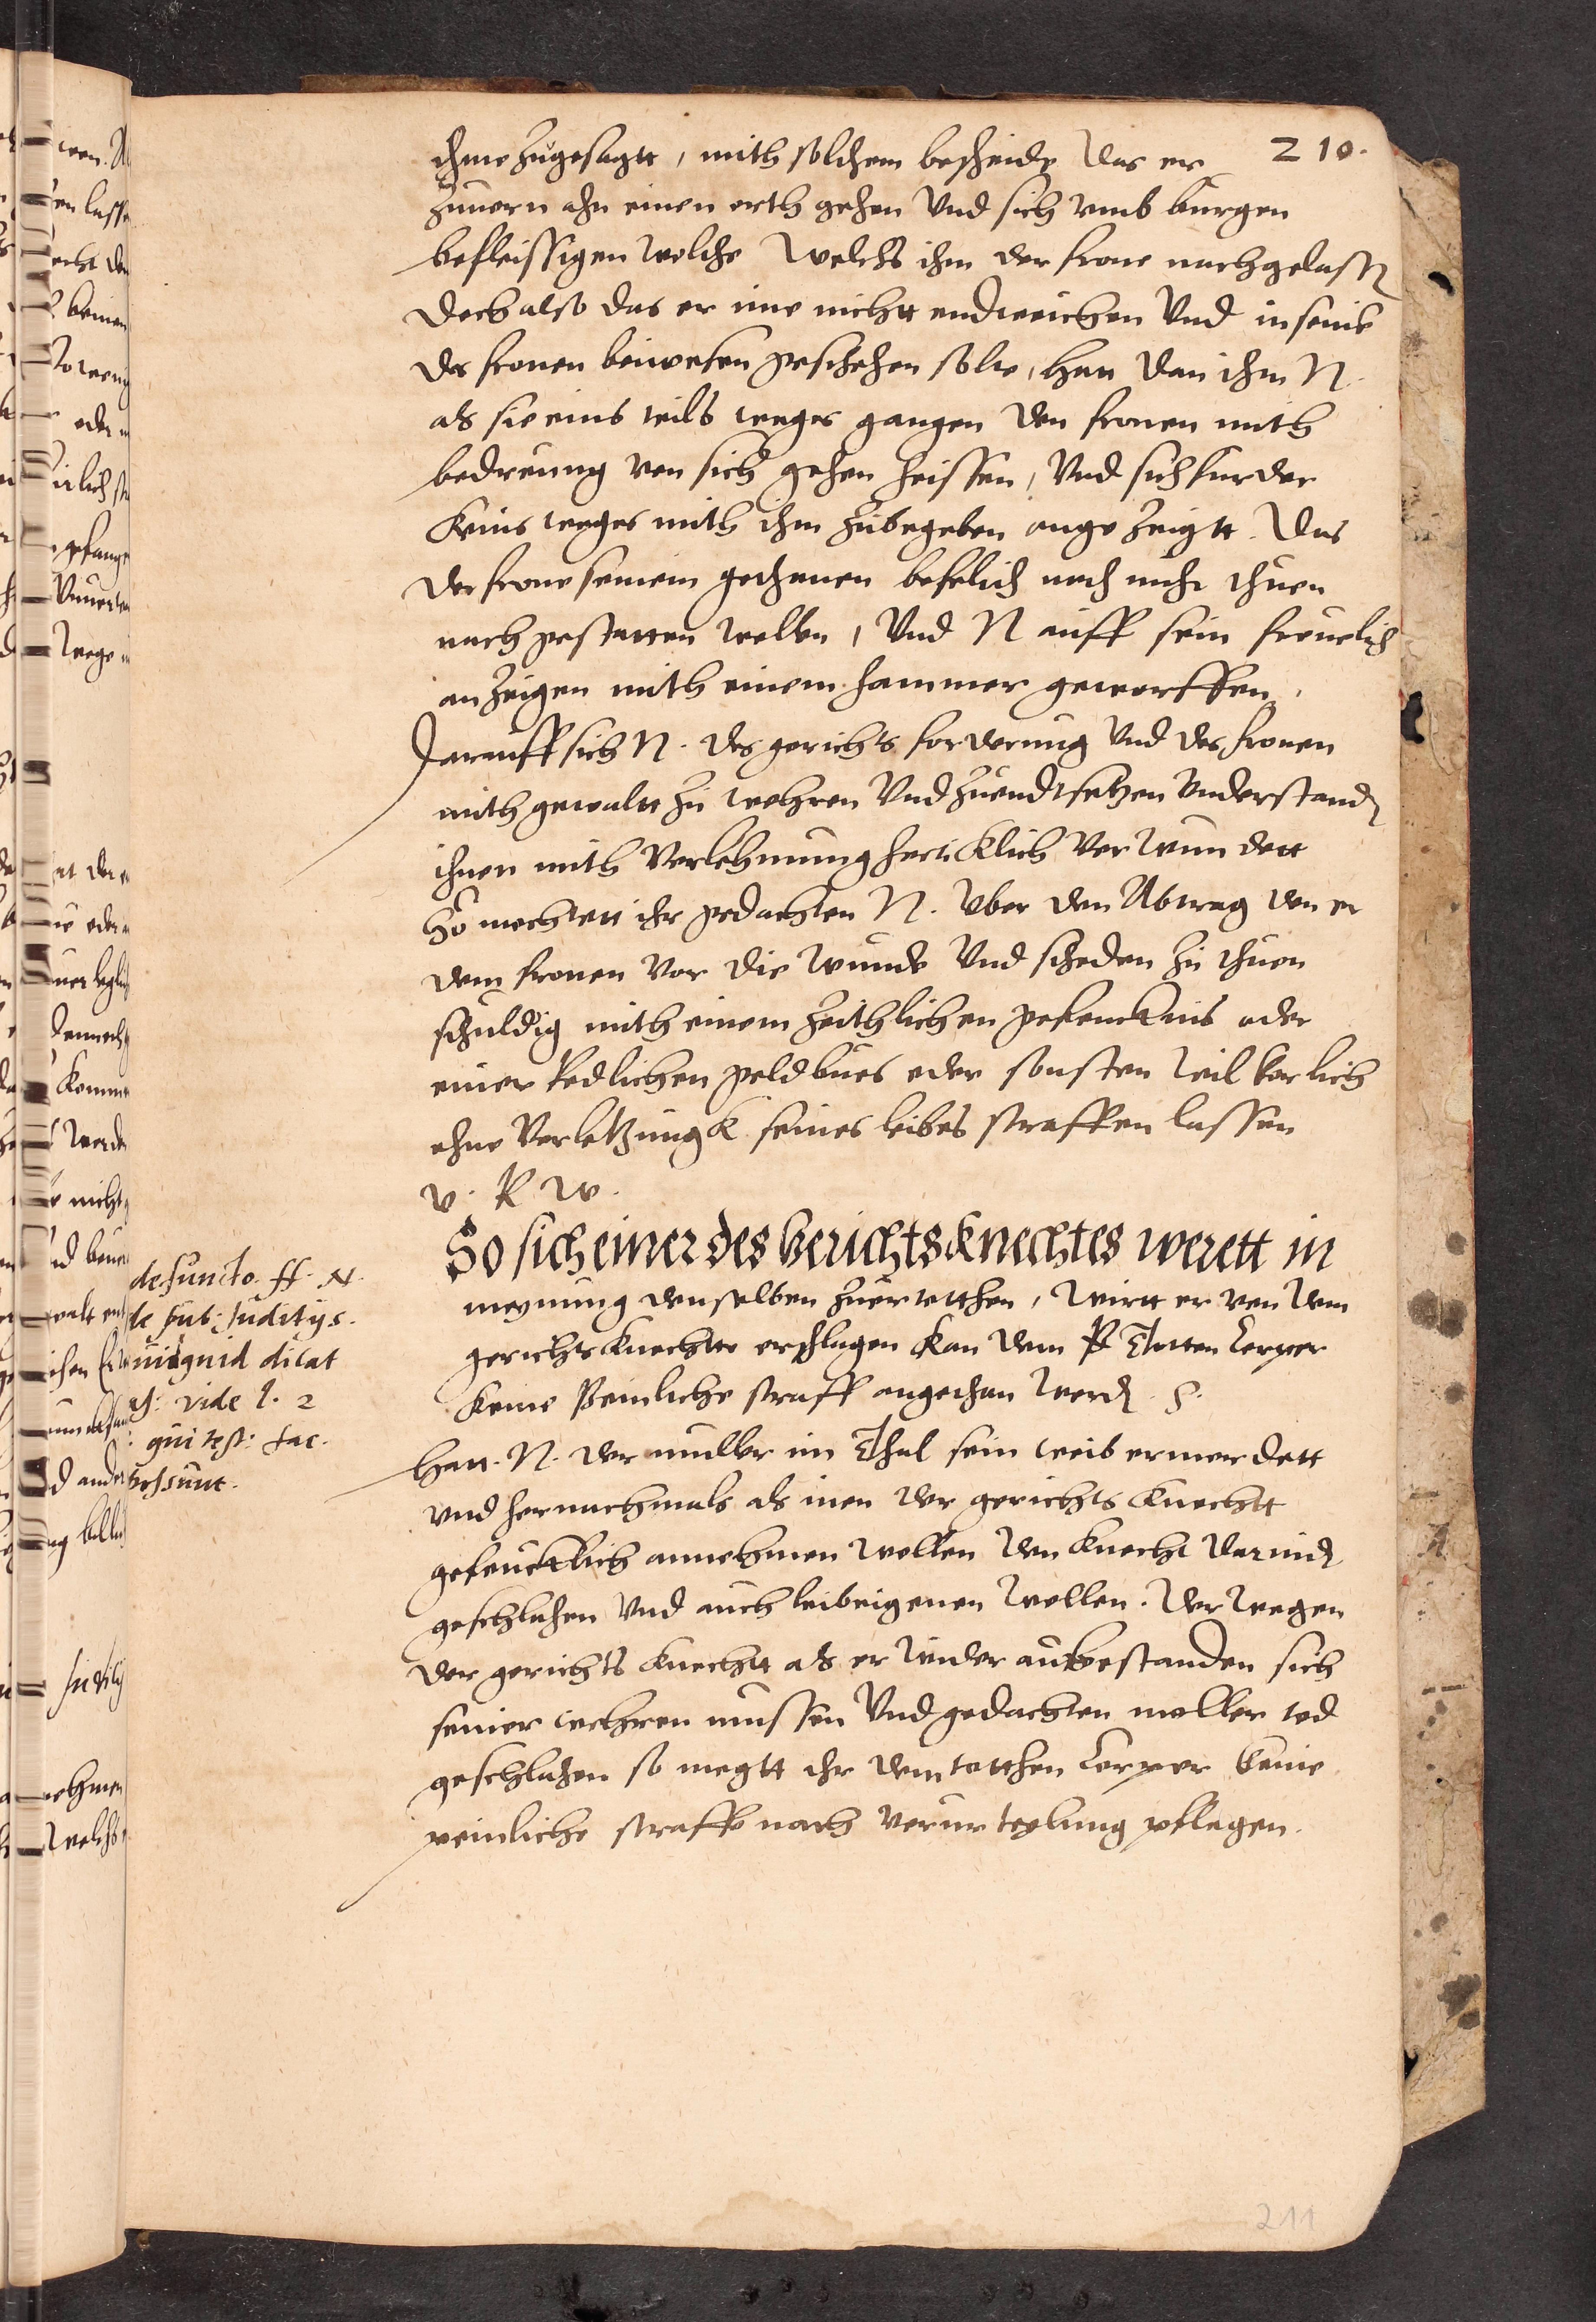 210.
ihme zugesagtt, mith solchem bescheide Das er
zuuern ahn einen orth gehen Vnd sich vmb burgen
befleissigen welche Welchs ihm der frone nachgelassen
Doch also das er ime nichtt endtweichen Vnd in seins
des fronen beiwesen geschehen solte, Hatt dan ihm N.
als sie eins teils weges gangen den fronen mith
bedreuung von sich gehen heissen, Vnd sich furder
keins weges mith ihm zubegeben angezeigtt. Das
der frone seinem gethanen befelich nach nicht thuen
nach gestatten wollen, Vnd N auff sein freuelich
anzeigen mith einem hammer geworffen,
Darauff sich N. des gerichts forderung Vnd des fronen
mith gewaltt zu wehren Vnd zuendtsetzen Vnderstanden
ihnen mith Verlehmung herticklich Verwundett
So mochtett ihr gedachten N. vber den Abtrag den er
dem fronen Vor die Wunde Vnd scheden zu thuen
schuldig mith einem zeithlichen gefencknis oder
einer Redlichen geldbues oder sonsten Wilkorlich
ohne Verletzungk seines leibes straffen lassen
V. R W.
So sich einer des Gerichtsknechtes werett in
meynung denselben zuertotthen, Wirtt er von dem
gerichts knechtte erschlagen kan dem Totten Corper
keine Peinliche straff angethan Werden. S.
Hatt. N. der muller im Thal sein weib ermordett
vnd hernachmals als inen der gerichts knechtt
gefencklich annehmen Wollen den knecht darnider
geschlahen Vnd auch leibeigenen Wollen. Derwegen
der gerichts knechtt als er Wider aufgestanden sich
seiner wehren mussen Vnd gedachten moller tod
geschlahen so megtt ihr dem totthen Corper keine
peinliche straffe nach Verurteylung pflegen.
defuncto. ff. N.
de pub: Juditijs.
quid dicat
vide l. 2
qui test: fac.
possunt.
211